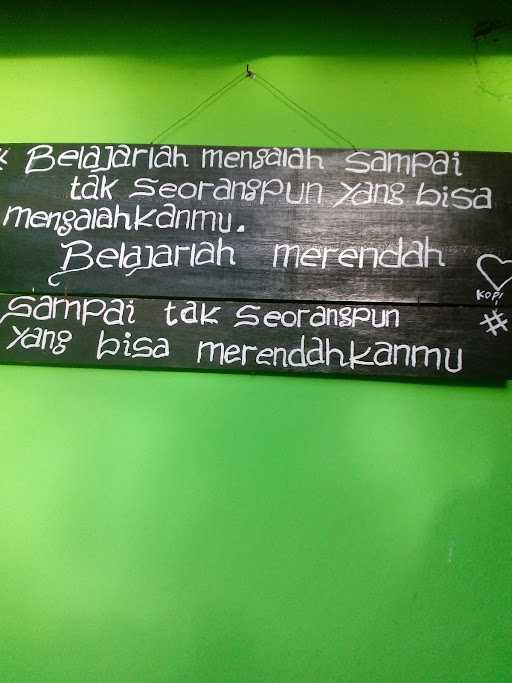 Belajarlah mengalah sampai
tak seorangpun yang bisa
mengalahkanmu.
Belajarlah merendah
KOPI
sampai tak seorangpun #
yang bisa merendahkanmu